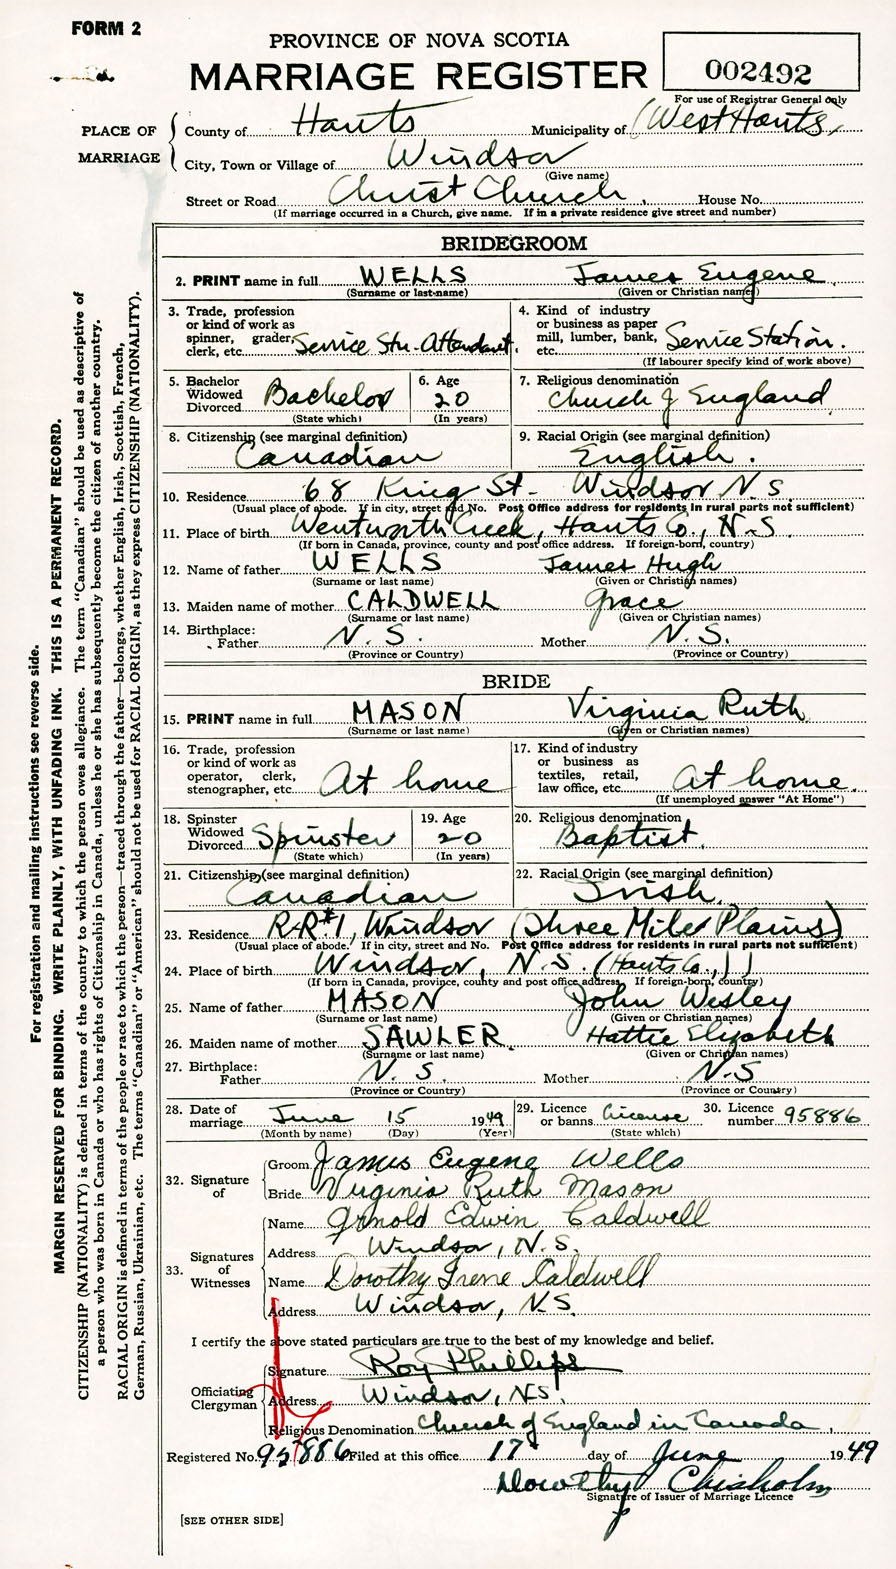 FORM 2
PROVINCE OF NOVA SCOTIA
MARRIAGE REGISTER
002492
For use of Registrar General only
PLACE OF MARRIAGE
County of Hants Municipality of (West Hants)
City, Town or Village of Windsor
(Give name)
Street or Road Christ Church, House No.
(If marriage occurred in a Church, give name. If in a private residence give street and number)
BRIDEGROOM
2. PRINT name in full WELLS James Eugene
(Surname or last name) (Given or Christian names)
3. Trade, profession or kind of work as spinner, grader, clerk, etc. Service Stn. Attendant.
4. Kind of industry or business as paper mill, lumber, bank, etc. Service Station.
(If labourer specify kind of work above)
5. Bachelor Widowed Divorced Bachelor
(State which)
6. Age 20
(In years)
7. Religious denomination Church of England
8. Citizenship (see marginal definition) Canadian
9. Racial Origin (see marginal definition) English.
10. Residence 68 King St. Windsor N.S.
(Usual place of abode. If in city, street and No. Post Office address for residents in rural parts not sufficient)
11. Place of birth Wentworth Creek, Hants Co., N.S.
(If born in Canada, province, county and post office address. If foreign-born, country)
12. Name of father WELLS James Hugh
(Surname or last name) (Given or Christian names)
13. Maiden name of mother CALDWELL Grace
(Surname or last name) (Given or Christian names)
14. Birthplace: Father N.S. Mother N.S.
(Province or Country) (Province or Country)
BRIDE
15. PRINT name in full MASON Virginia Ruth
(Surname or last name) (Given or Christian names)
16. Trade, profession or kind of work as operator, clerk, stenographer, etc. At home
17. Kind of industry or business as textiles, retail, law office, etc. At home.
(If unemployed answer "At Home")
18. Spinster Widowed Divorced Spinster
(State which)
19. Age 20
(In years)
20. Religious denomination Baptist.
21. Citizenship (see marginal definition) Canadian
22. Racial Origin (see marginal definition) Irish.
23. Residence R.R.#1, Windsor (Three Mile Plains)
(Usual place of abode. If in city, street and No. Post Office address for residents in rural parts not sufficient)
24. Place of birth Windsor, N.S. (Hants Co.,)
(If born in Canada, province, county and post office address. If foreign-born, country)
25. Name of father MASON John Wesley
(Surname or last name) (Given or Christian names)
26. Maiden name of mother SAWLER. Hattie Elizabeth
(Surname or last name) (Given or Christian names)
27. Birthplace: Father N.S. Mother N.S
(Province or Country) (Province or Country)
28. Date of marriage June 15 1949
(Month by name) (Day) (Year)
29. Licence or banns License
(State which)
30. Licence number 95886
32. Signature of
Groom James Eugene Wells
Bride Virginia Ruth Mason
33. Signatures of Witnesses
Name Arnold Edwin Caldwell
Address Windsor, N.S.
Name Dorothy Irene Caldwell
Address Windsor, N.S.
I certify the above stated particulars are true to the best of my knowledge and belief.
Officiating Clergyman
Signature Roy Phillips
Address Windsor, N.S.
Religious Denomination Church of England in Canada.
Registered No. 95886 Filed at this office 17 day of June 1949
Dorothy Chisholm
Signature of Issuer of Marriage Licence
[SEE OTHER SIDE]
For registration and mailing instructions see reverse side.
MARGIN RESERVED FOR BINDING. WRITE PLAINLY, WITH UNFADING INK. THIS IS A PERMANENT RECORD.
CITIZENSHIP (NATIONALITY) is defined in terms of the country to which the person owes allegiance. The term "Canadian" should be used as descriptive of
a person who was born in Canada or who has rights of Citizenship in Canada, unless he or she has subsequently become the citizen of another country.
RACIAL ORIGIN is defined in terms of the people or race to which the person—traced through the father—belongs, whether English, Irish, Scottish, French,
German, Russian, Ukrainian, etc. The terms "Canadian" or "American" should not be used for RACIAL ORIGIN, as they express CITIZENSHIP (NATIONALITY).